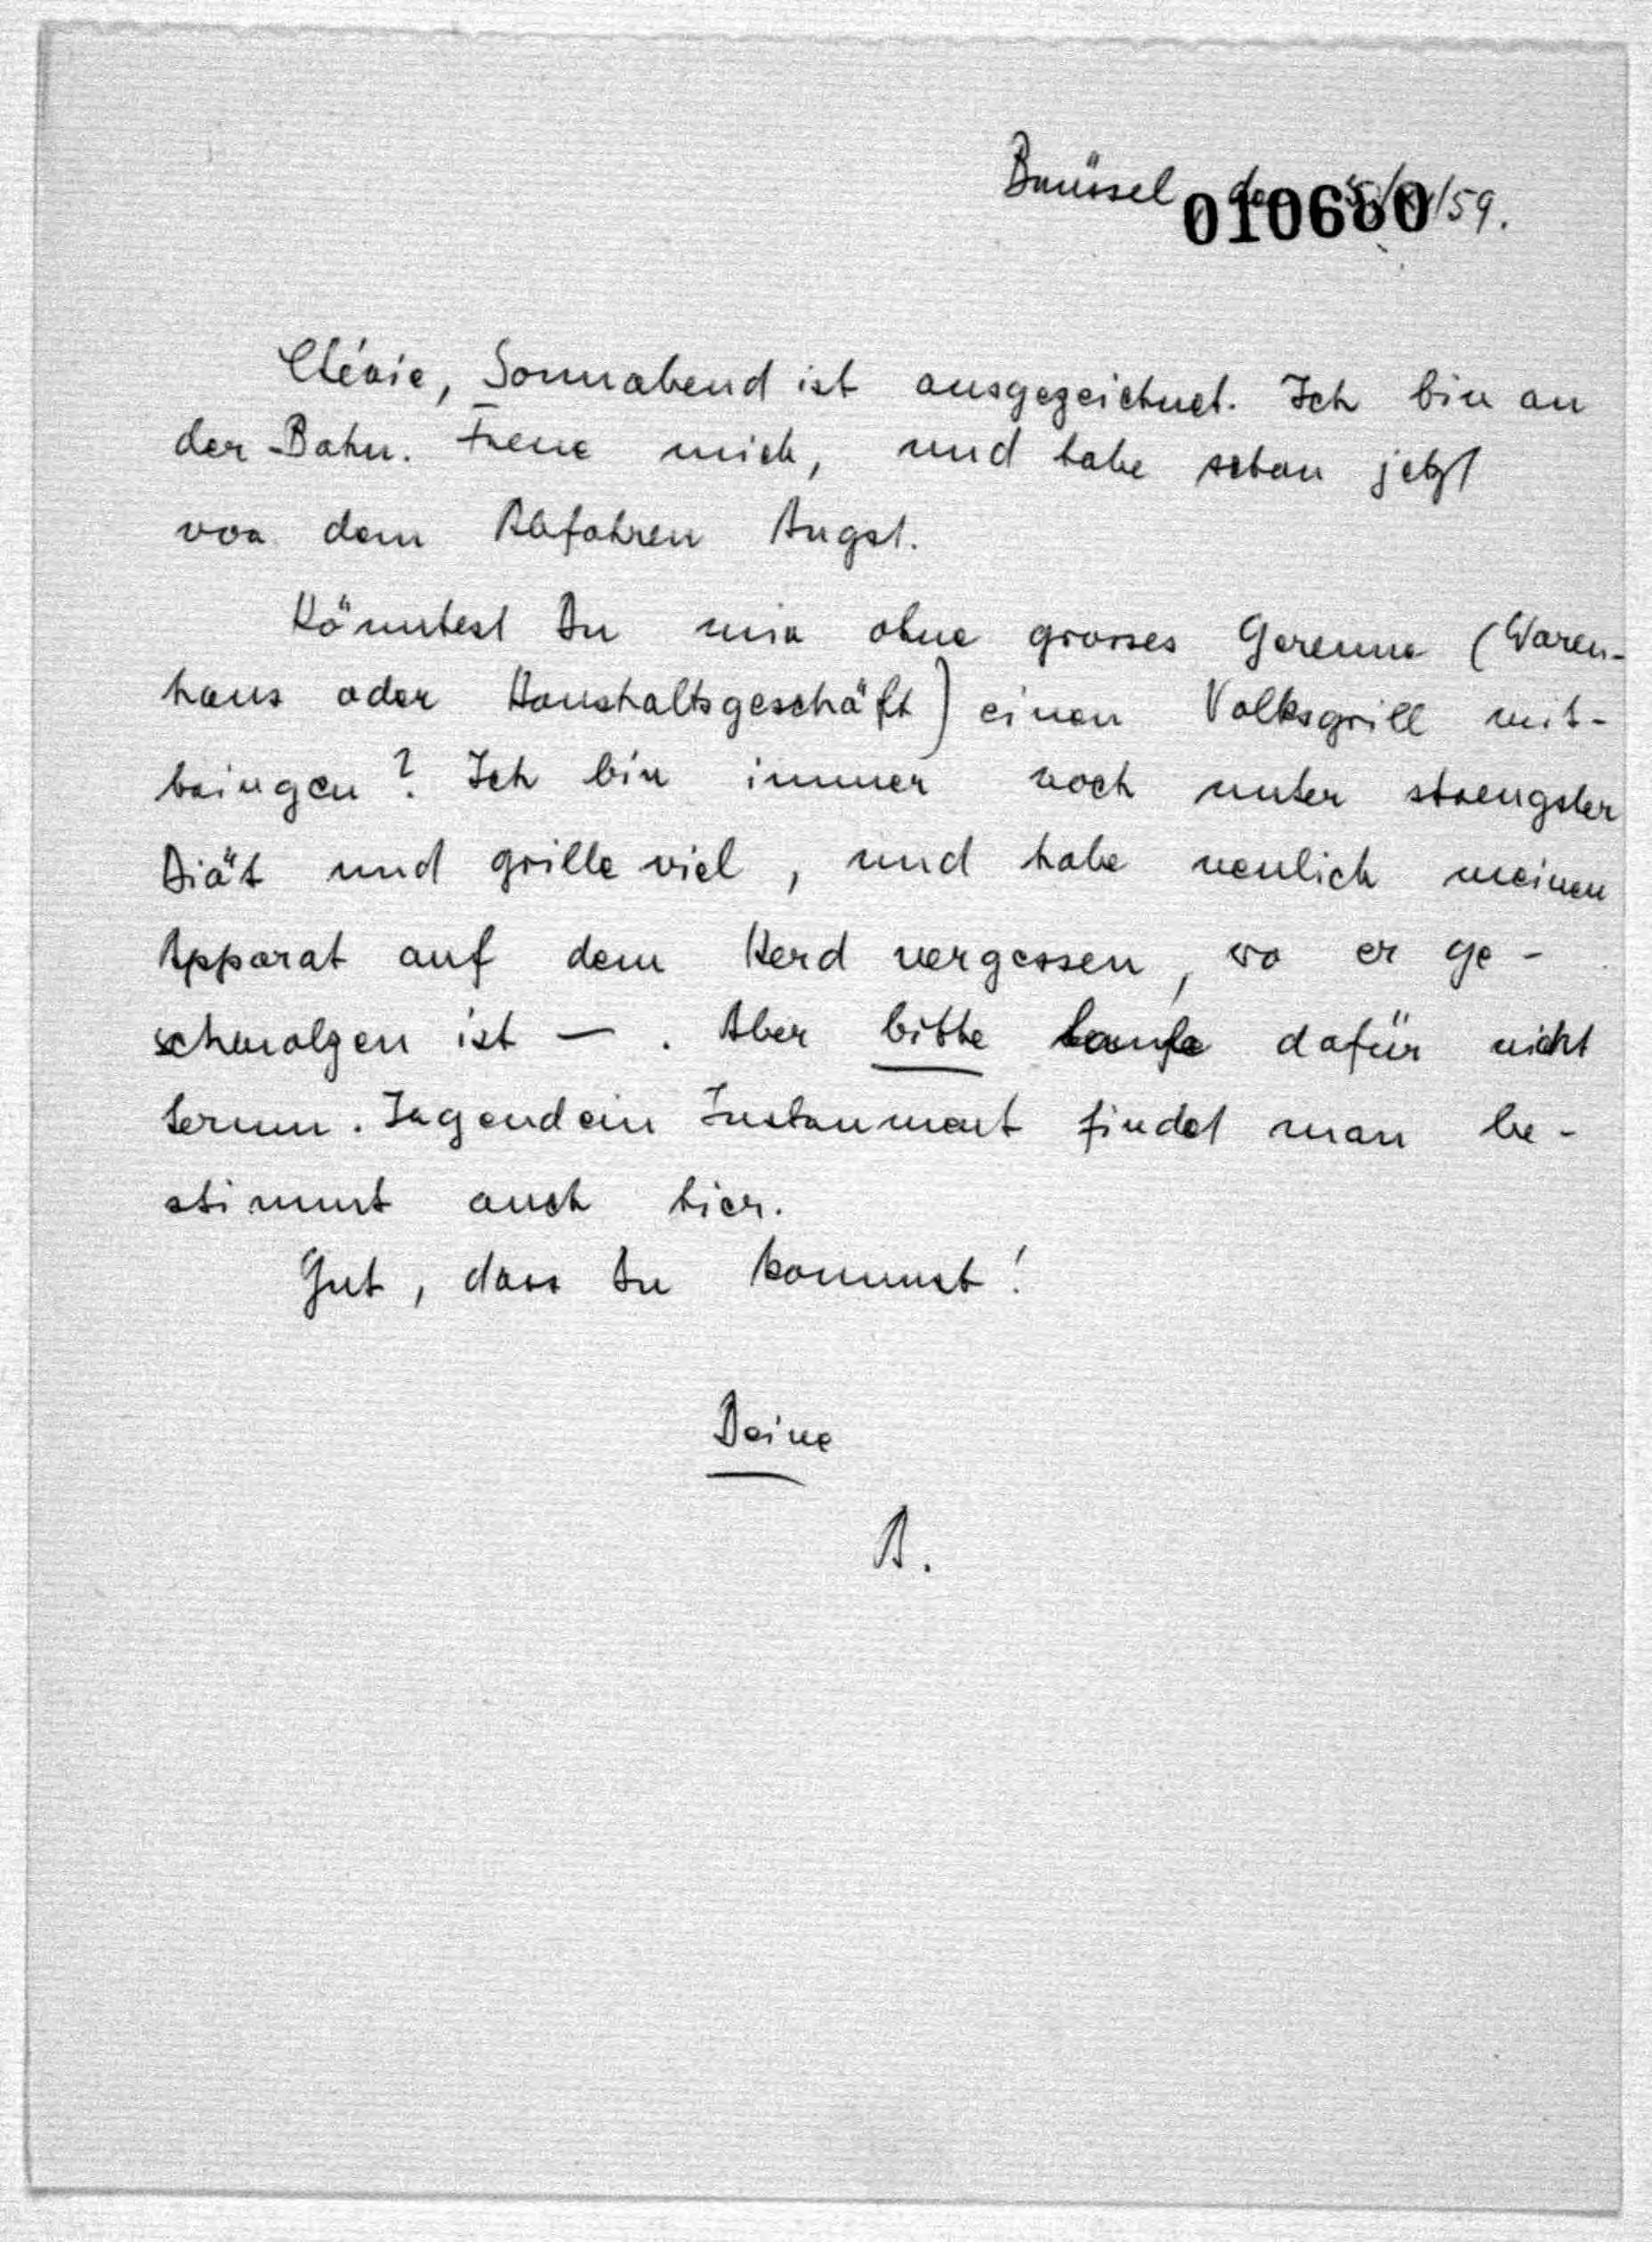 Brüssel, den 5/ /59.
010680
Chérie, Sonnabend ist ausgezeichnet. Ich bin an
der Bahn. Freue mich, und habe schon jetzt
vor dem Abfahren Angst.
Könntest Du mir ohne grosses Gerenne (Waren-
haus oder Haushaltsgeschäft) einen Volksgrill mit-
bringen? Ich bin immer noch unter strengster
Diät und grille viel, und habe neulich meinen
Apparat auf dem Herd vergessen, wo er ge-
schmolzen ist —. Aber bitte laufe dafür nicht
herum. Irgendein Instrument findet man be-
stimmt auch hier.
Gut, dass Du kommst!
Deine
A.